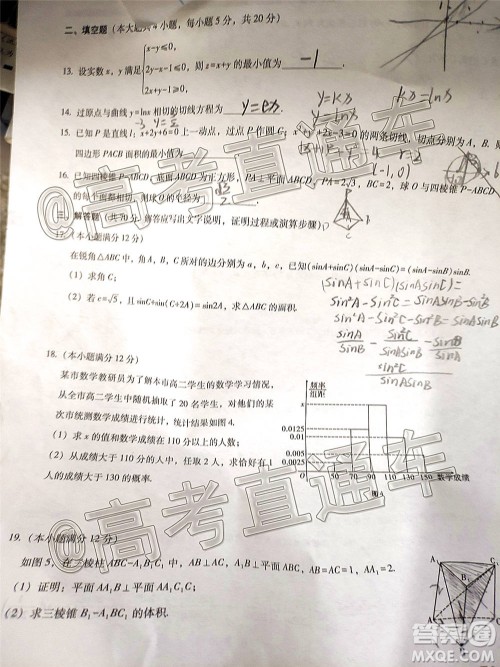 二、填空题（本大题共4小题，每小题5分，共20分）
x−y≤0,
13. 设实数x，y满足 2y−x−1≤0, 则z=x+y的最小值为 −1
2x+y−1≥0,
14. 过原点与曲线y=lnx相切的切线方程为 y=ex
y=kx
kx=lnx
15. 已知P是直线l：x+2y+6=0上一动点，过点P作圆C：x²+y²+2x−3=0的两条切线，切点分别为A、B，则
四边形PACB面积的最小值为
(−1,0)
16. 已知四棱锥P−ABCD的底面ABCD为正方形，PA⊥平面ABCD，PA=2√3，BC=2，球O与四棱锥P−ABCD
的每个面都相切，则球O的半径为
三、解答题（共70分，解答应写出文字说明，证明过程或演算步骤）
17.（本小题满分12分）
在锐角△ABC中，角A、B、C所对的边分别为a，b，c，已知(sinA+sinC)(sinA−sinC)=(sinA−sinB)sinB.
（1）求角C；
（2）若c=√3，且sinC+sin(C+2A)=sin2A，求△ABC的面积.
(sinA+sinC)(sinA−sinC)=
sin²A−sin²C=sinAsinB−sin²B
18.（本小题满分12分）
某市数学教研员为了解本市高二学生的数学学习情况，
从全市高二学生中随机抽取了20名学生，对他们的某
次市统测数学成绩进行统计，统计结果如图4.
（1）求x的值和数学成绩在110分以上的人数；
（2）从成绩大于110分的人中，任取2人，求恰好有1
人的成绩大于130的概率.
频率
组距
x
0.0125
0.01
0.005
50 70 90 110 130 150 数学成绩
图4
19.（本小题满分12分）
如图5，在三棱柱ABC−A₁B₁C₁中，AB⊥AC，AA₁⊥平面ABC，AB=AC=1，AA₁=2.
（1）证明：平面AA₁B⊥平面AA₁C₁C；
（2）求三棱锥B₁−A₁BC₁的体积.
@高考直通车
@高考直通车
答案圈
MXQE.COM